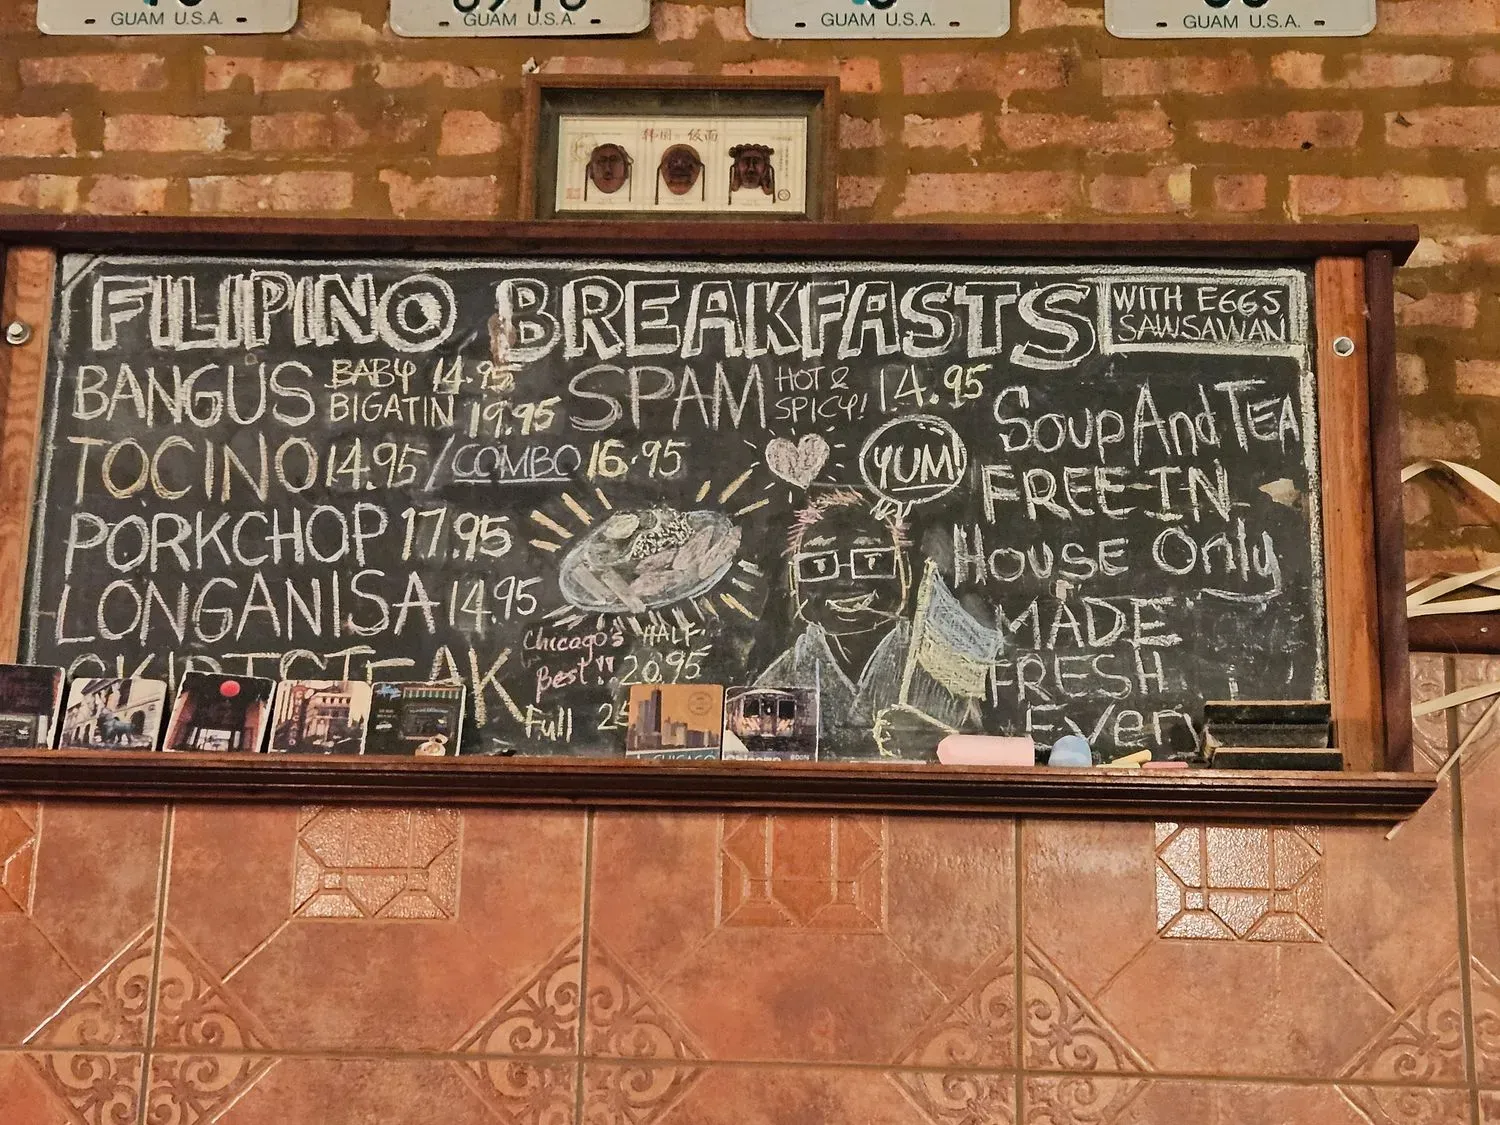 GUAM U.S.A.
GUAM U.S.A.
GUAM U.S.A.
GUAM U.S.A.
韩国 假面
FILIPINO BREAKFASTS
WITH EGGS
SAWSAWAN
BANGUS BABY 14.95
BIGATIN 19.95
SPAM HOT &
SPICY! 14.95
TOCINO 14.95 / COMBO 16.95
PORKCHOP 17.95
LONGANISA 14.95
SKIRTSTEAK
Chicago's
Best!!
HALF-
20.95
Full
YUM!
Soup And TEA
FREE-IN
HOUSE Only
MADE
FRESH
Every
CHICAGO